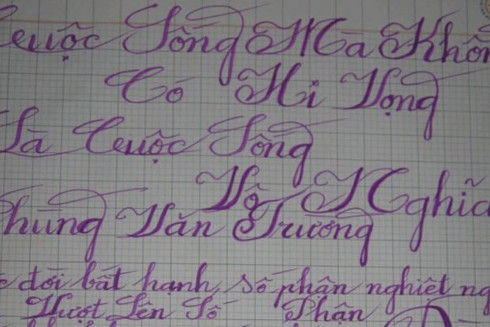 Cuộc Sống Mà Khôn
Có Hi Vọng
Là Cuộc Sống
Vô Nghĩa
Phùng Văn Trường
đời bất hạnh, số phận nghiệt ng
Vượt Lên Số Phận